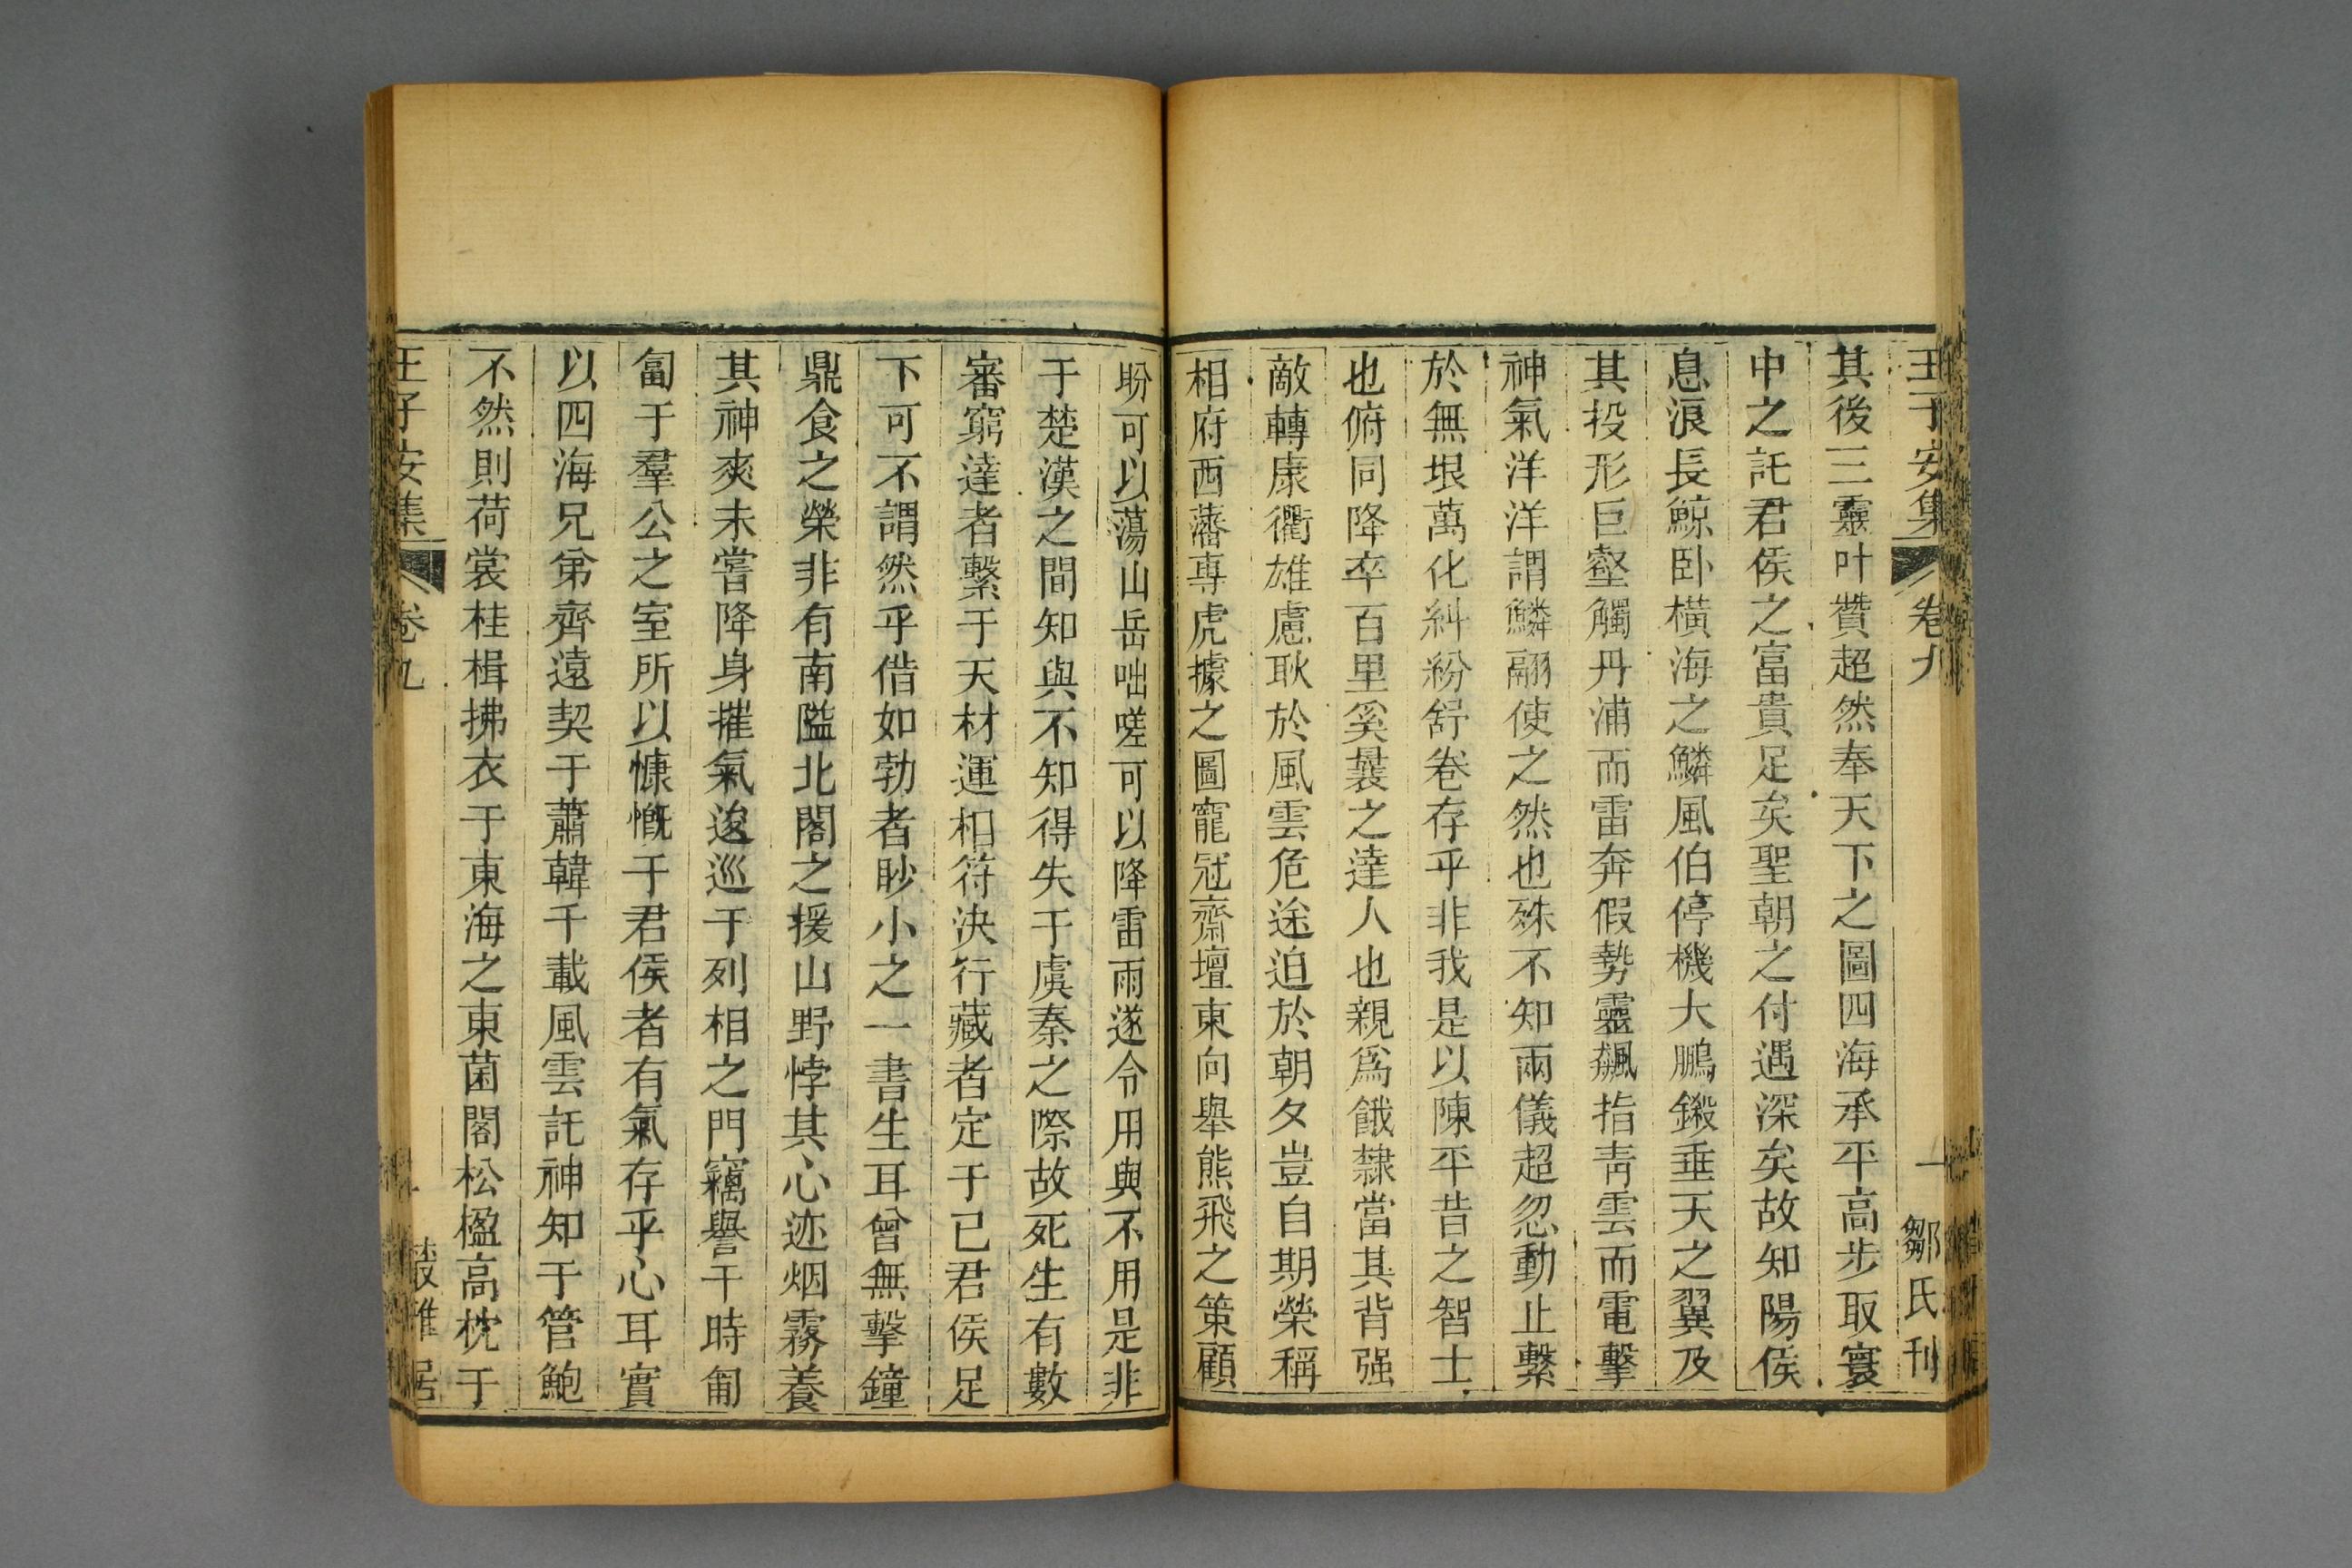 王子安集 卷九 一 鄒氏刊
其後三靈叶贊超然奉天下之圖四海承平高步取寰
中之託君侯之富貴足矣聖朝之付遇深矣故知陽侯
息浪長鯨卧橫海之鱗風伯停機大鵬鎩垂天之翼及
其投形巨壑觸丹浦而雷奔假勢靈飆指青雲而電擊
神氣洋洋謂鱗翮使之然也殊不知兩儀超忽動止繫
於無垠萬化糾紛舒卷存乎非我是以陳平昔之智士
也俯同降卒百里奚曩之達人也親爲餓隸當其背强
敵轉康衢雄慮耿於風雲危途迫於朝夕豈自期榮稱
相府西藩專虎據之圖寵冠齋壇東向舉熊飛之策顧
盼可以蕩山岳咄嗟可以降雷雨遂令用與不用是非
于楚漢之間知與不知得失于虞秦之際故死生有數
審窮達者繫于天材運相符決行藏者定于已君侯足
下可不謂然乎借如勃者眇小之一書生耳曾無擊鐘
鼎食之榮非有南隘北閣之援山野悖其心迹烟霧養
其神爽未嘗降身摧氣逡巡于列相之門竊譽干時匍
匐于羣公之室所以慷慨于君侯者有氣存乎心耳實
以四海兄弟齊遠契于蕭韓千載風雲託神知于管鮑
不然則荷裳桂楫拂衣于東海之東菌閣松楹高枕于
王子安集 卷九 叢雅居